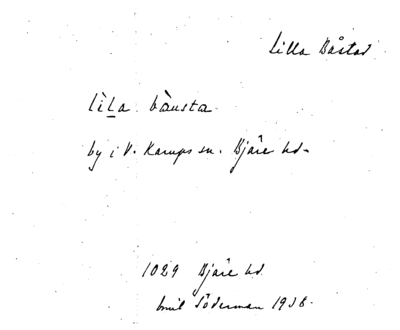 Lilla Båstad
lìLa bàusta
by i V. Karups sn. Bjäre hd.
1029 Bjäre hd.
Emil Söderman 1938.